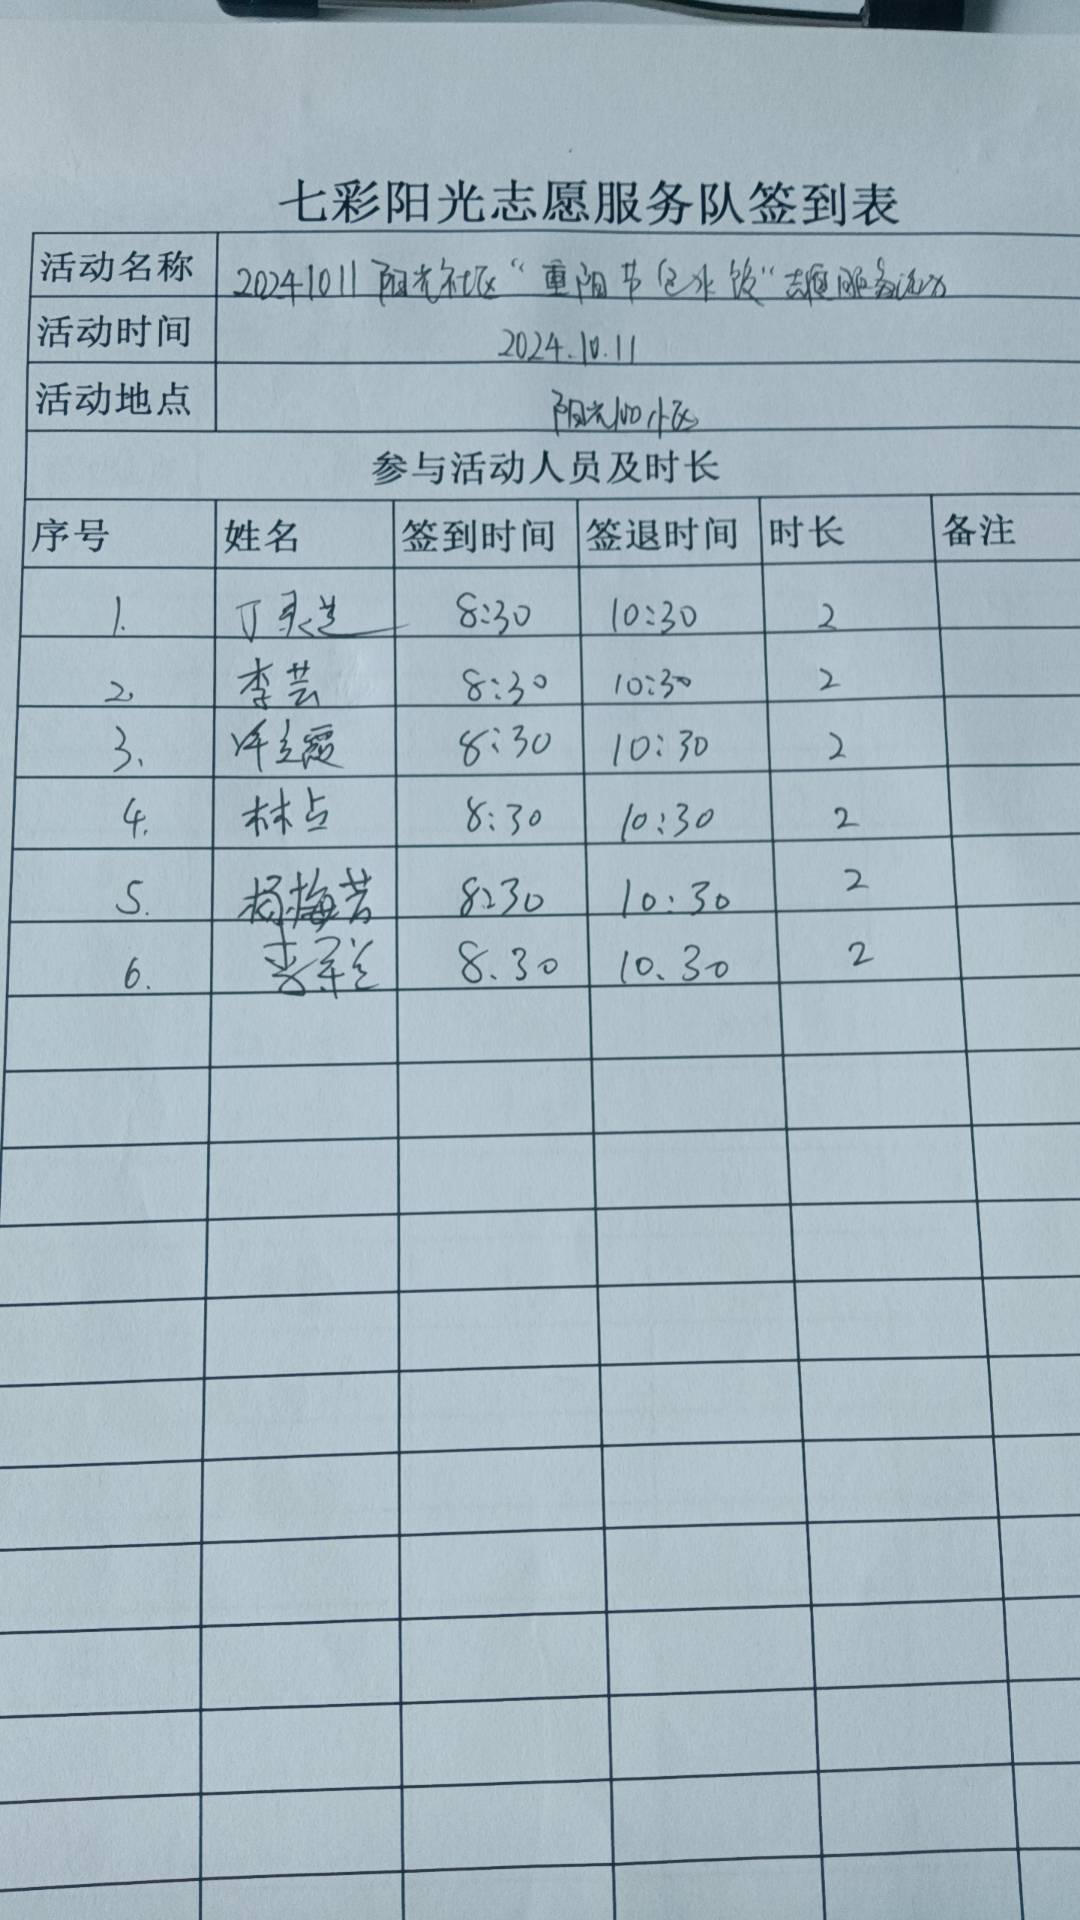 七彩阳光志愿服务队签到表
活动名称 20241011 阳光社区“重阳节包水饺”志愿服务活动
活动时间 2024.10.11
活动地点 阳光100小区
参与活动人员及时长
序号 姓名 签到时间 签退时间 时长 备注
1. 丁 8:30 10:30 2
2. 李芸 8:30 10:30 2
3. 8:30 10:30 2
4. 林 8:30 10:30 2
5. 杨梅芳 8:30 10:30 2
6. 李 8.30 10.30 2